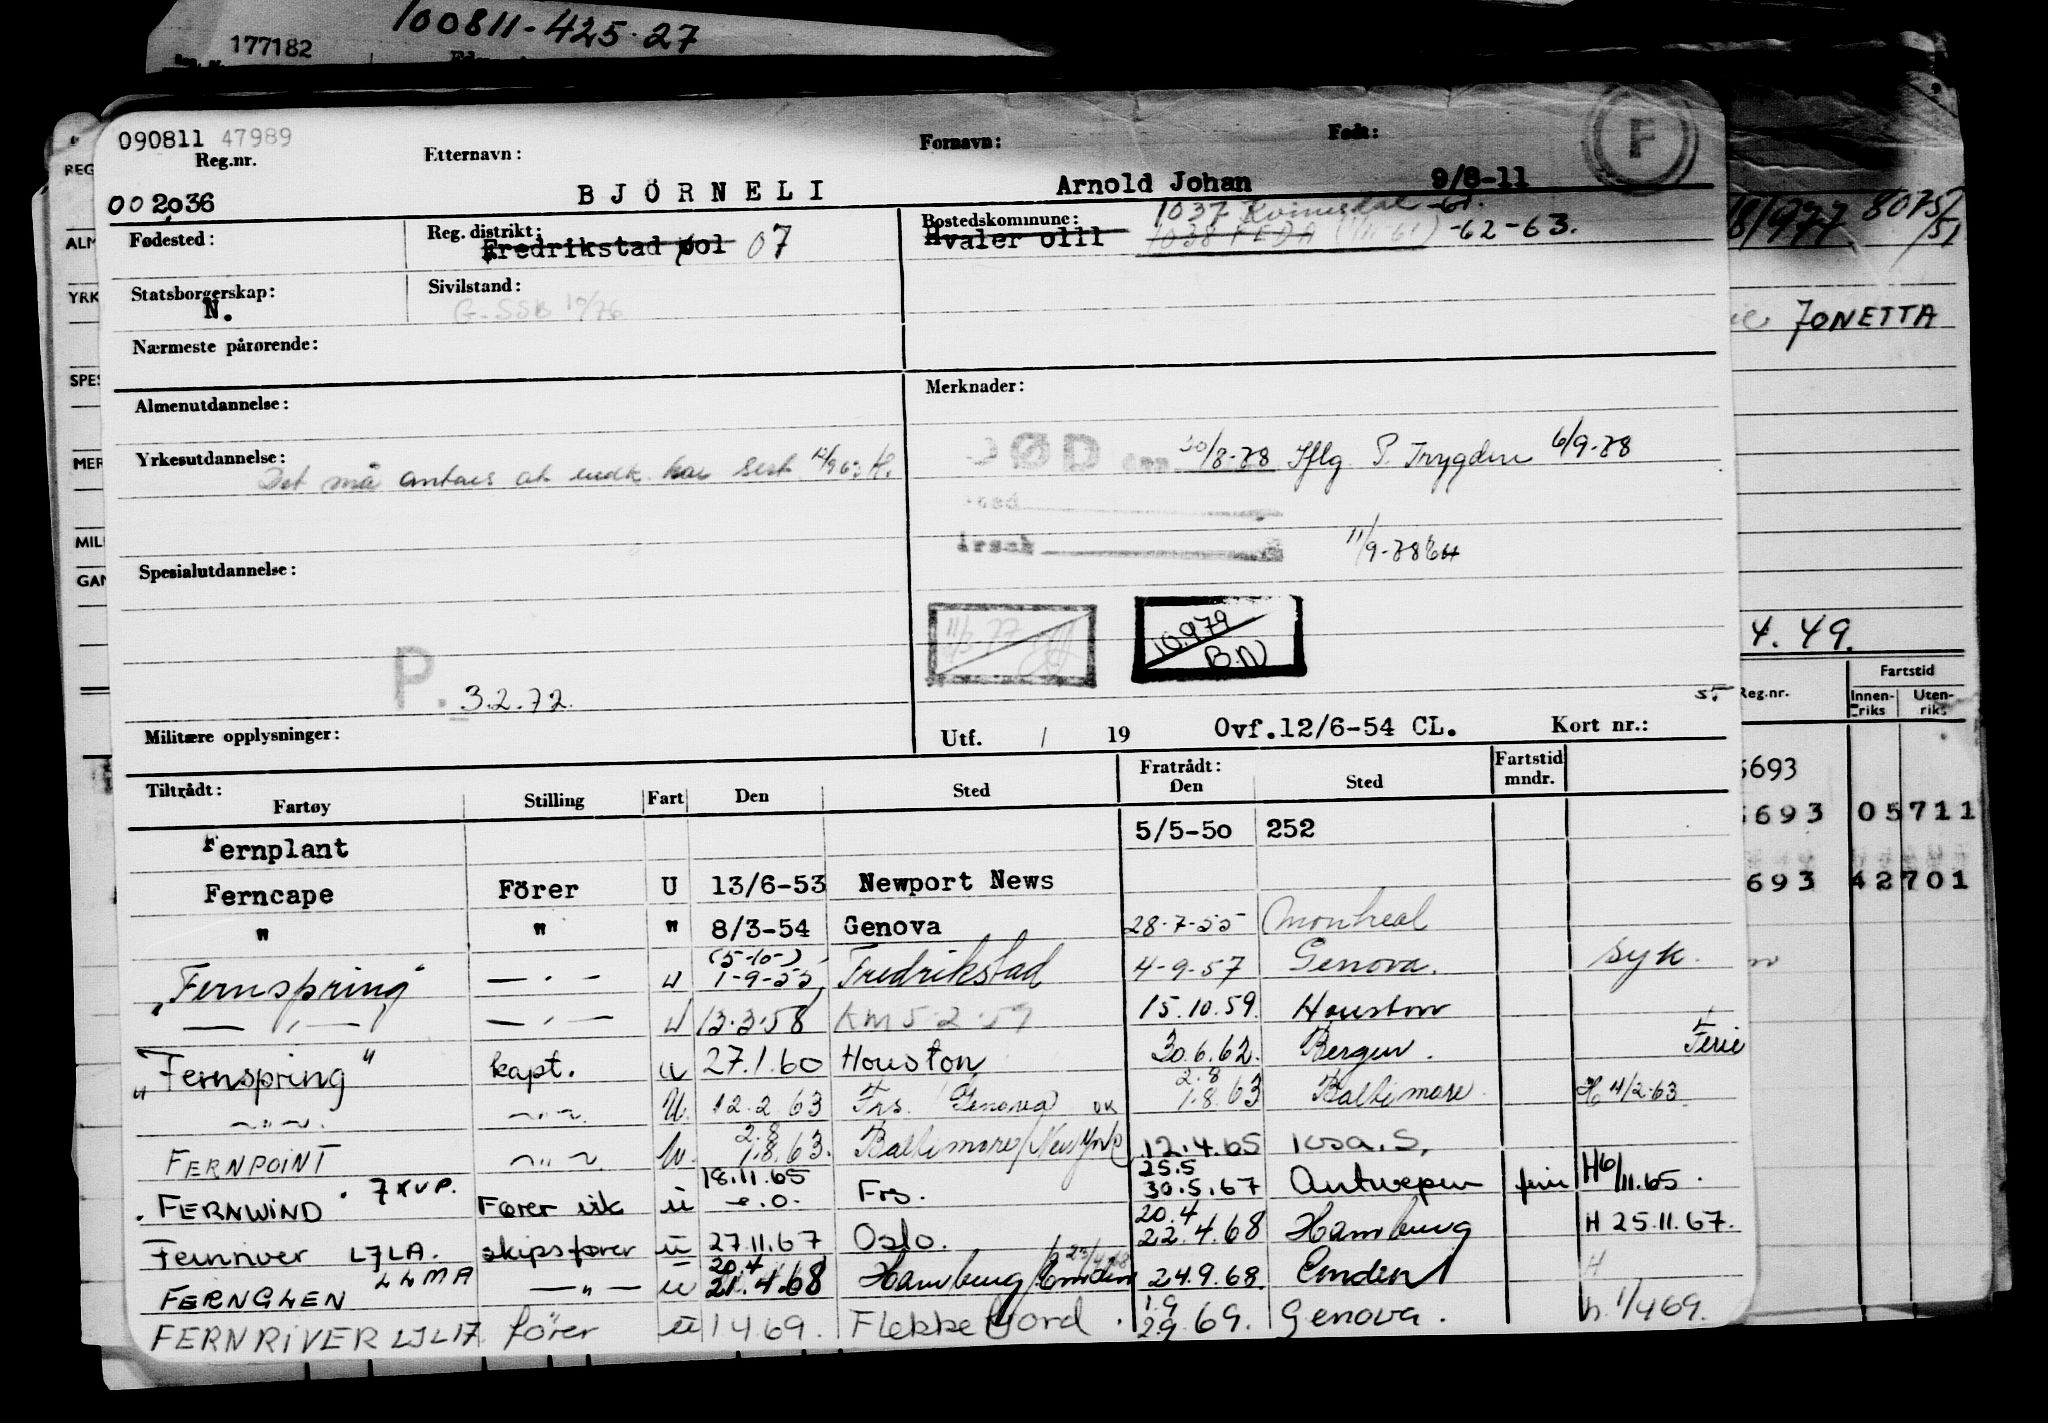 100811-425.27
177182
090811 47989
Reg.nr. Etternavn: Fornavn: Født:
F
002036 BJÖRNELI Arnold Johan 9/8-11
Fødested: Reg. distrikt: Bostedskommune: 1037 Kvinesdal -61.
Fredrikstad pol 07 Hvaler 0111 1038 FEDA (1/11-61) -62-63.
Statsborgerskap: Sivilstand:
N. G. SSB 10/76
Nærmeste pårørende:
Almenutdannelse: Merknader:
Yrkesutdannelse: DØD den 30/8-78 Iflg. P. Trygden 6/9-78
Det må antaes at vedk. har sert. 12/9 63 K.
11/9-78
Spesialutdannelse:
11/3 77
10.979
B.N
P. 3.2.72.
Militære opplysninger: Utf. / 19 Ovf.12/6-54 CL. Kort nr.:
Tiltrådt: Fratrådt: Fartstid mndr.
Fartøy Stilling Fart Den Sted Den Sted
Fernplant 5/5-50 252
Ferncape Förer U 13/6-53 Newport News
" " " 8/3-54 Genova 28-7-55 Montreal
"Fernspring" — " — u (5-10-) 1-9-55, Fredrikstad 4-9-57 Genova. syk.
— " — — " — u 13.3.58 KM 5.2.59 15.10.59. Houston
"Fernspring" kapt. u 27.1.60 Houston 30.6.62. Bergen. Ferie
— " — — " — U. 12.2 63 Frs. Genova OK 2.8 1.8.63 Baltimore. H 4/2-63
FERNPOINT — " — U. 2.8 1.8.63. Baltimore/New York 12.4.65 USA.S.
FERNWIND 7XVP. Fører vik u 18.11.65 e.o. Frs. 25.5 30.5.67 Antwerpen ferie H 6/11.65.
Fernriver LJLA. skipsfører u 27.11.67 Oslo. 20.4 22.4.68 Hamburg H 25.11.67.
FERNGLEN LLMA — " — u 20.4 21.4.68 Hamburg/Emden 24.9.68. Emden H
FERNRIVER LJLA förer u 1 4 69. Flekkefjord. 1.9 2.9 69. Genova. h. 1/4 69.
REG
ALM
YRK
SPES
MER
MIL
GAN
8075/51
JONETTA
4.49.
Reg.nr. Fartstid
Innenriks Utenriks
5693
5693 05711
693 42701